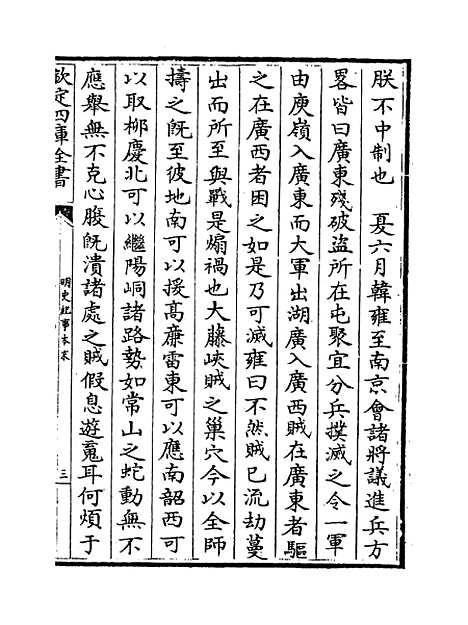 朕不中制也　夏六月韓雍至南京會諸將議進兵方
畧皆曰廣東殘破盜所在屯聚宜分兵撲滅之令一軍
由庾嶺入廣東而大軍出湖廣入廣西賊在廣東者驅
之在廣西者困之如是乃可滅雍曰不然賊已流劫蔓
出而所至與戰是煽禍也大藤峽賊之巢穴今以全師
擣之旣至彼地南可以援髙亷雷東可以應南韶西可
以取柳慶北可以繼陽峒諸路勢如常山之蛇動無不
應舉無不克心腹旣潰諸處之賊假息遊䰟耳何煩于
欽定四庫全書
明史紀事本末
三